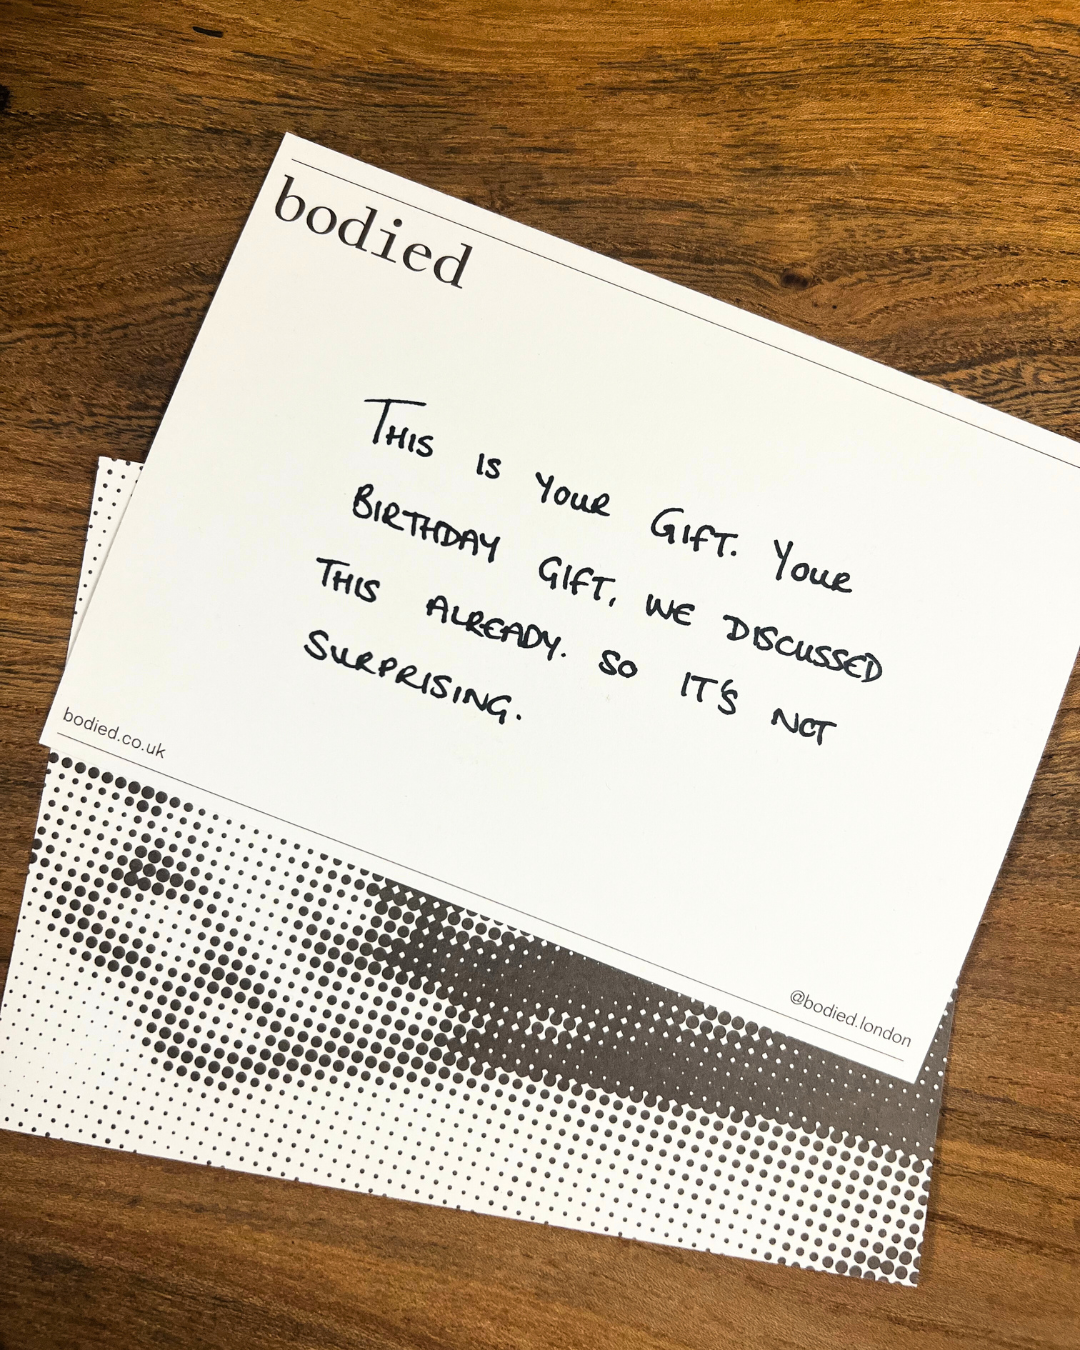 bodied
THIS IS YOUR GIFT. YOUR
BIRTHDAY GIFT, WE DISCUSSED
THIS ALREADY. SO IT'S NOT
SURPRISING.
bodied.co.uk
@bodied.london